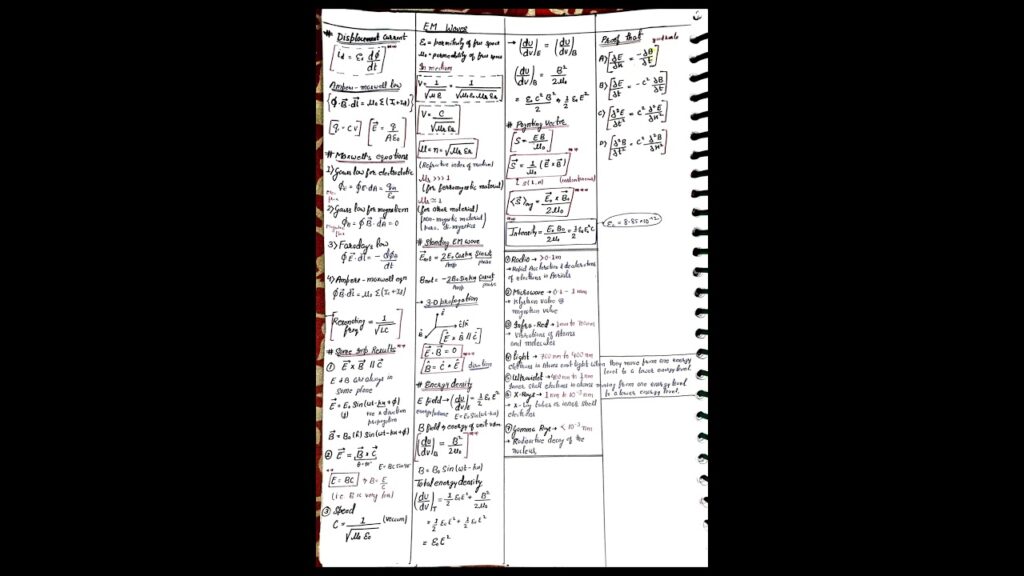 EM Waves
# Displacement Current
id = ε₀ dϕ/dt
Ampere-maxwell law
{∮B⃗·dl⃗ = μ₀ Σ(Ic+Id)}
[q = CV] [E⃗ = q/Aε₀]
# Maxwell's equations
1) Gauss law for electrostatic
ϕE = ∮E·dA = qin/ε₀
2) Gauss law for magnetism
ϕB = ∮B⃗·dA = 0
3) Faraday's law
∮E⃗·dl⃗ = -dϕB/dt
4) Ampere-maxwell eqn
∮B·dl = μ₀ Σ(Ic+Id)
[Resonating freq = 1/√LC]
# Some Imp Results
① E⃗ × B⃗ ∥ C⃗
E & B are always in
same plane
E⃗ = E₀ Sin(ωt-kx+ϕ)
(j)
+ve x direction
propagation
B⃗ = B₀(k̂) Sin(ωt-kx+ϕ)
② E⃗ = B⃗ × C⃗
θ=90° E=BC sin90
E = BC → B = E/C
(i.e. B is very less)
③ Speed
C = 1/√μ₀ε₀ (vaccum)
ε₀ = permitivity of free space
μ₀ = permeability of free space
In medium
V = 1/√με = 1/√μ₀ε₀μrεr
V = C/√μrεr
μ = n = √μrεr
(Refractive index of medium)
μr >>> 1
(for ferromagnetic material)
μr ≈ 1
(for other material)
# Standing EM wave
Enet = 2E₀ Coskx Sinωt
Amp phase
Bnet = -2B₀ Sinkx Cosωt
Amp phase
→ 3-D propagation
[E⃗ × B⃗ ∥ C⃗]
E⃗·B⃗ = 0
B̂ = Ĉ × Ê direction
# Energy density
E field → (dU/dV)E = ½ ε₀E²
E = E₀ Sin(ωt-kx)
B field → energy of unit volume
(dU/dV)B = B²/2μ₀
B = B₀ Sin(ωt-kx)
Total energy density
(dU/dV)T = ½ ε₀E² + B²/2μ₀
= ½ ε₀E² + ½ ε₀E²
= ε₀E²
→ (dU/dV)E = (dU/dV)B
(dU/dV)B = B²/2μ₀
= ε₀C²B²/2 → ½ ε₀E²
# Poynting Vector
S = EB/μ₀
S⃗ = 1/μ₀ (E⃗×B⃗)
(instantaneous)
⟨S⃗⟩avg = E⃗₀ × B⃗₀/2μ₀
Intensity = E₀B₀/2μ₀ = ½ ε₀E₀²C
① Radio → >0.1m
→ Rapid Acceleration & decelerations
of electrons in Aerials
② Microwave → 0.1 - 1mm
→ Klystron valve or
magnetron valve
③ Infra-Red → 1mm to 700nm
→ Vibrations of Atoms
and molecules
④ light → 700 nm to 400 nm
electrons in Atoms emit light when they move from one energy
level to a lower energy level
⑤ Ultraviolet → 400 nm to 1 nm
Inner shell electrons in atoms moving from one energy level
to a lower energy level
⑥ X-Rays → 1 nm to 10⁻³ nm
→ X-ray tubes or inner shell
electrons
⑦ Gamma Rays → < 10⁻³ nm
→ Radioactive decay of the
nucleus
Proof that
A) [∂E/∂x = -∂B/∂t]
B) [∂E/∂t = -C² ∂B/∂x]
C) [∂²E/∂t² = C² ∂²E/∂x²]
D) [∂²B/∂t² = C² ∂²B/∂x²]
ε₀ = 8.85×10⁻¹²